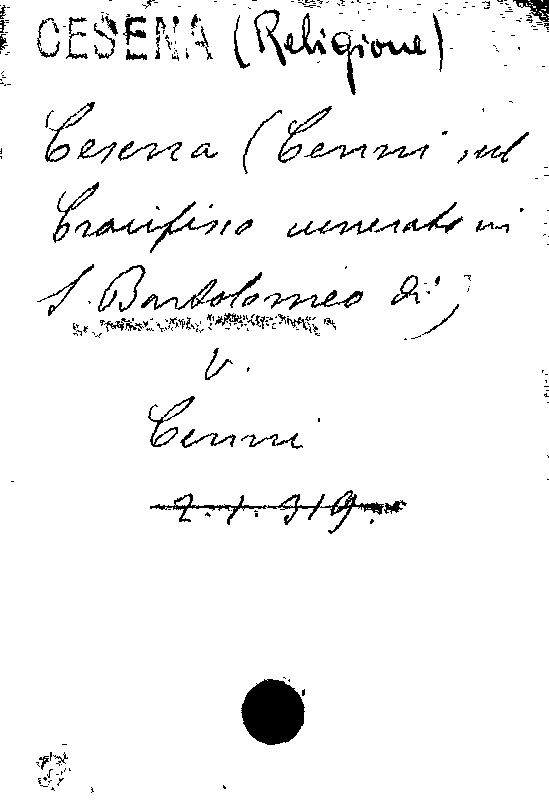 CESENA (Religione)
Cesena (Cenni sul
Crocifisso venerato in
S. Bartolomeo di)
V.
Cenni
2.1.319.